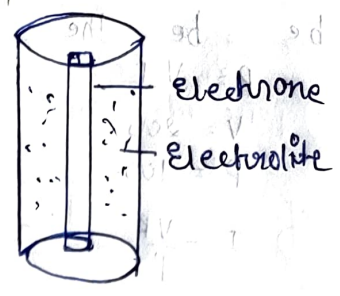 Electrone
Electrolite